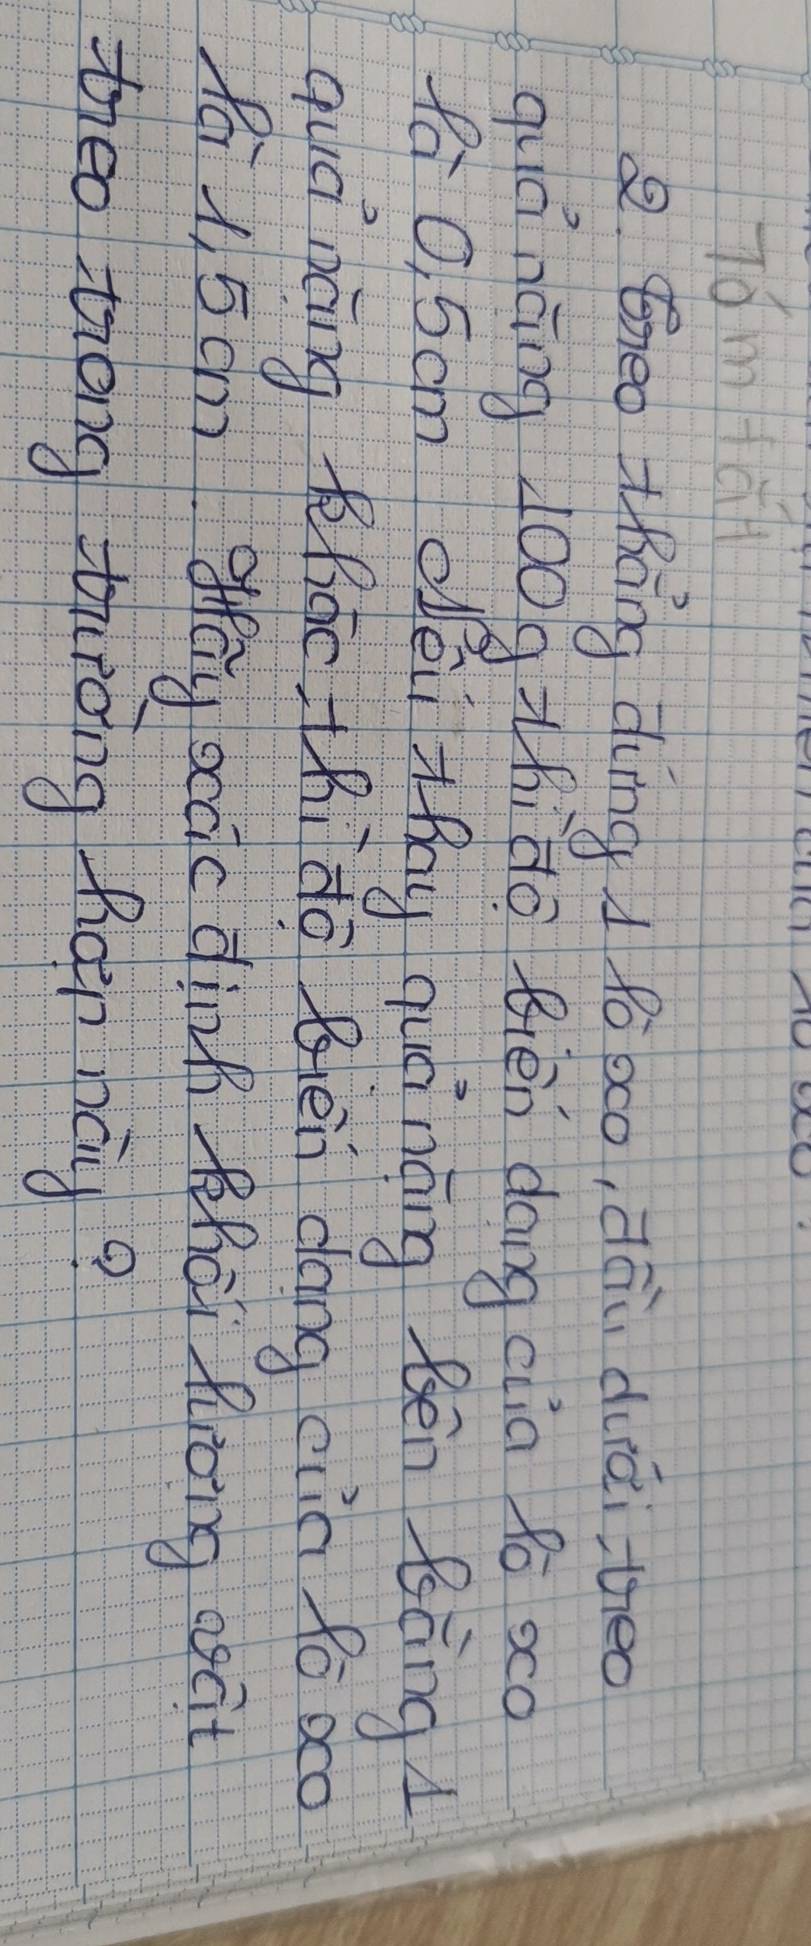 Tóm tắt
2. Treo thẳng đứng 1 lò xo, đầu dưới treo
quả nặng 100g thì độ biến dạng của lò xo
là 0,5cm. Nếu thay quả nặng bên bằng 1
quả nặng khác thì độ biến dạng của lò xo
là 1,5cm. Hãy xác định khối lượng vật
treo trong trường hợp này?